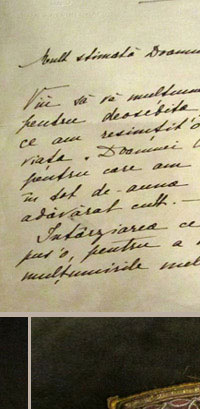 Mult stimată Doamn
Viu să vă mulțum
pentru deosebita
ce am resimțit
viața. Doamnei
pentru care am
în tot de-auna
adăvărat cult. —
Întârziarea ce
pus'o, pentru a
mulțumirile mel